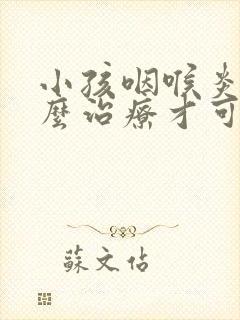 小孩咽喉炎
麼治療才可
蘇文估